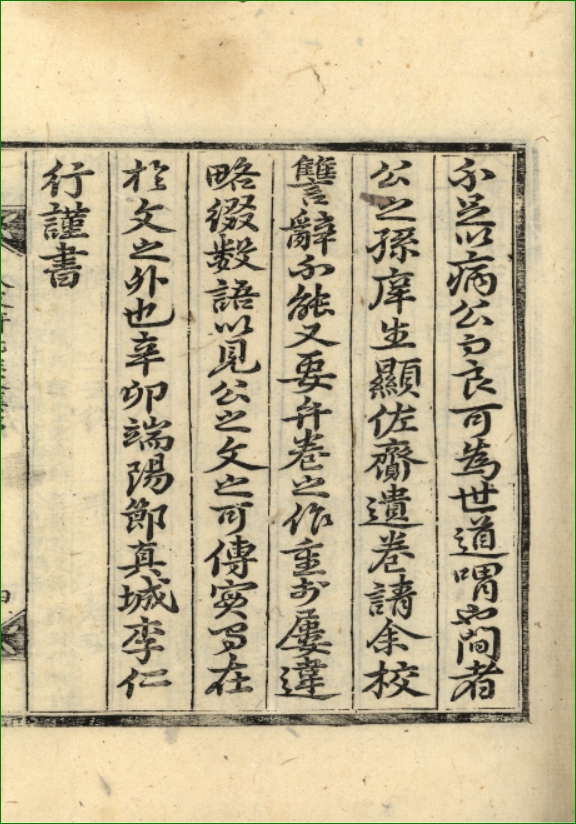 不足以病公而良可為世道喟也間者
公之孫庠生顯佐齎遺卷請余校
讐辭不能又要弁卷之作重於屢違
略綴数語以見公之文之可傳実有在
於文之外也辛卯端陽節真城李仁
行謹書